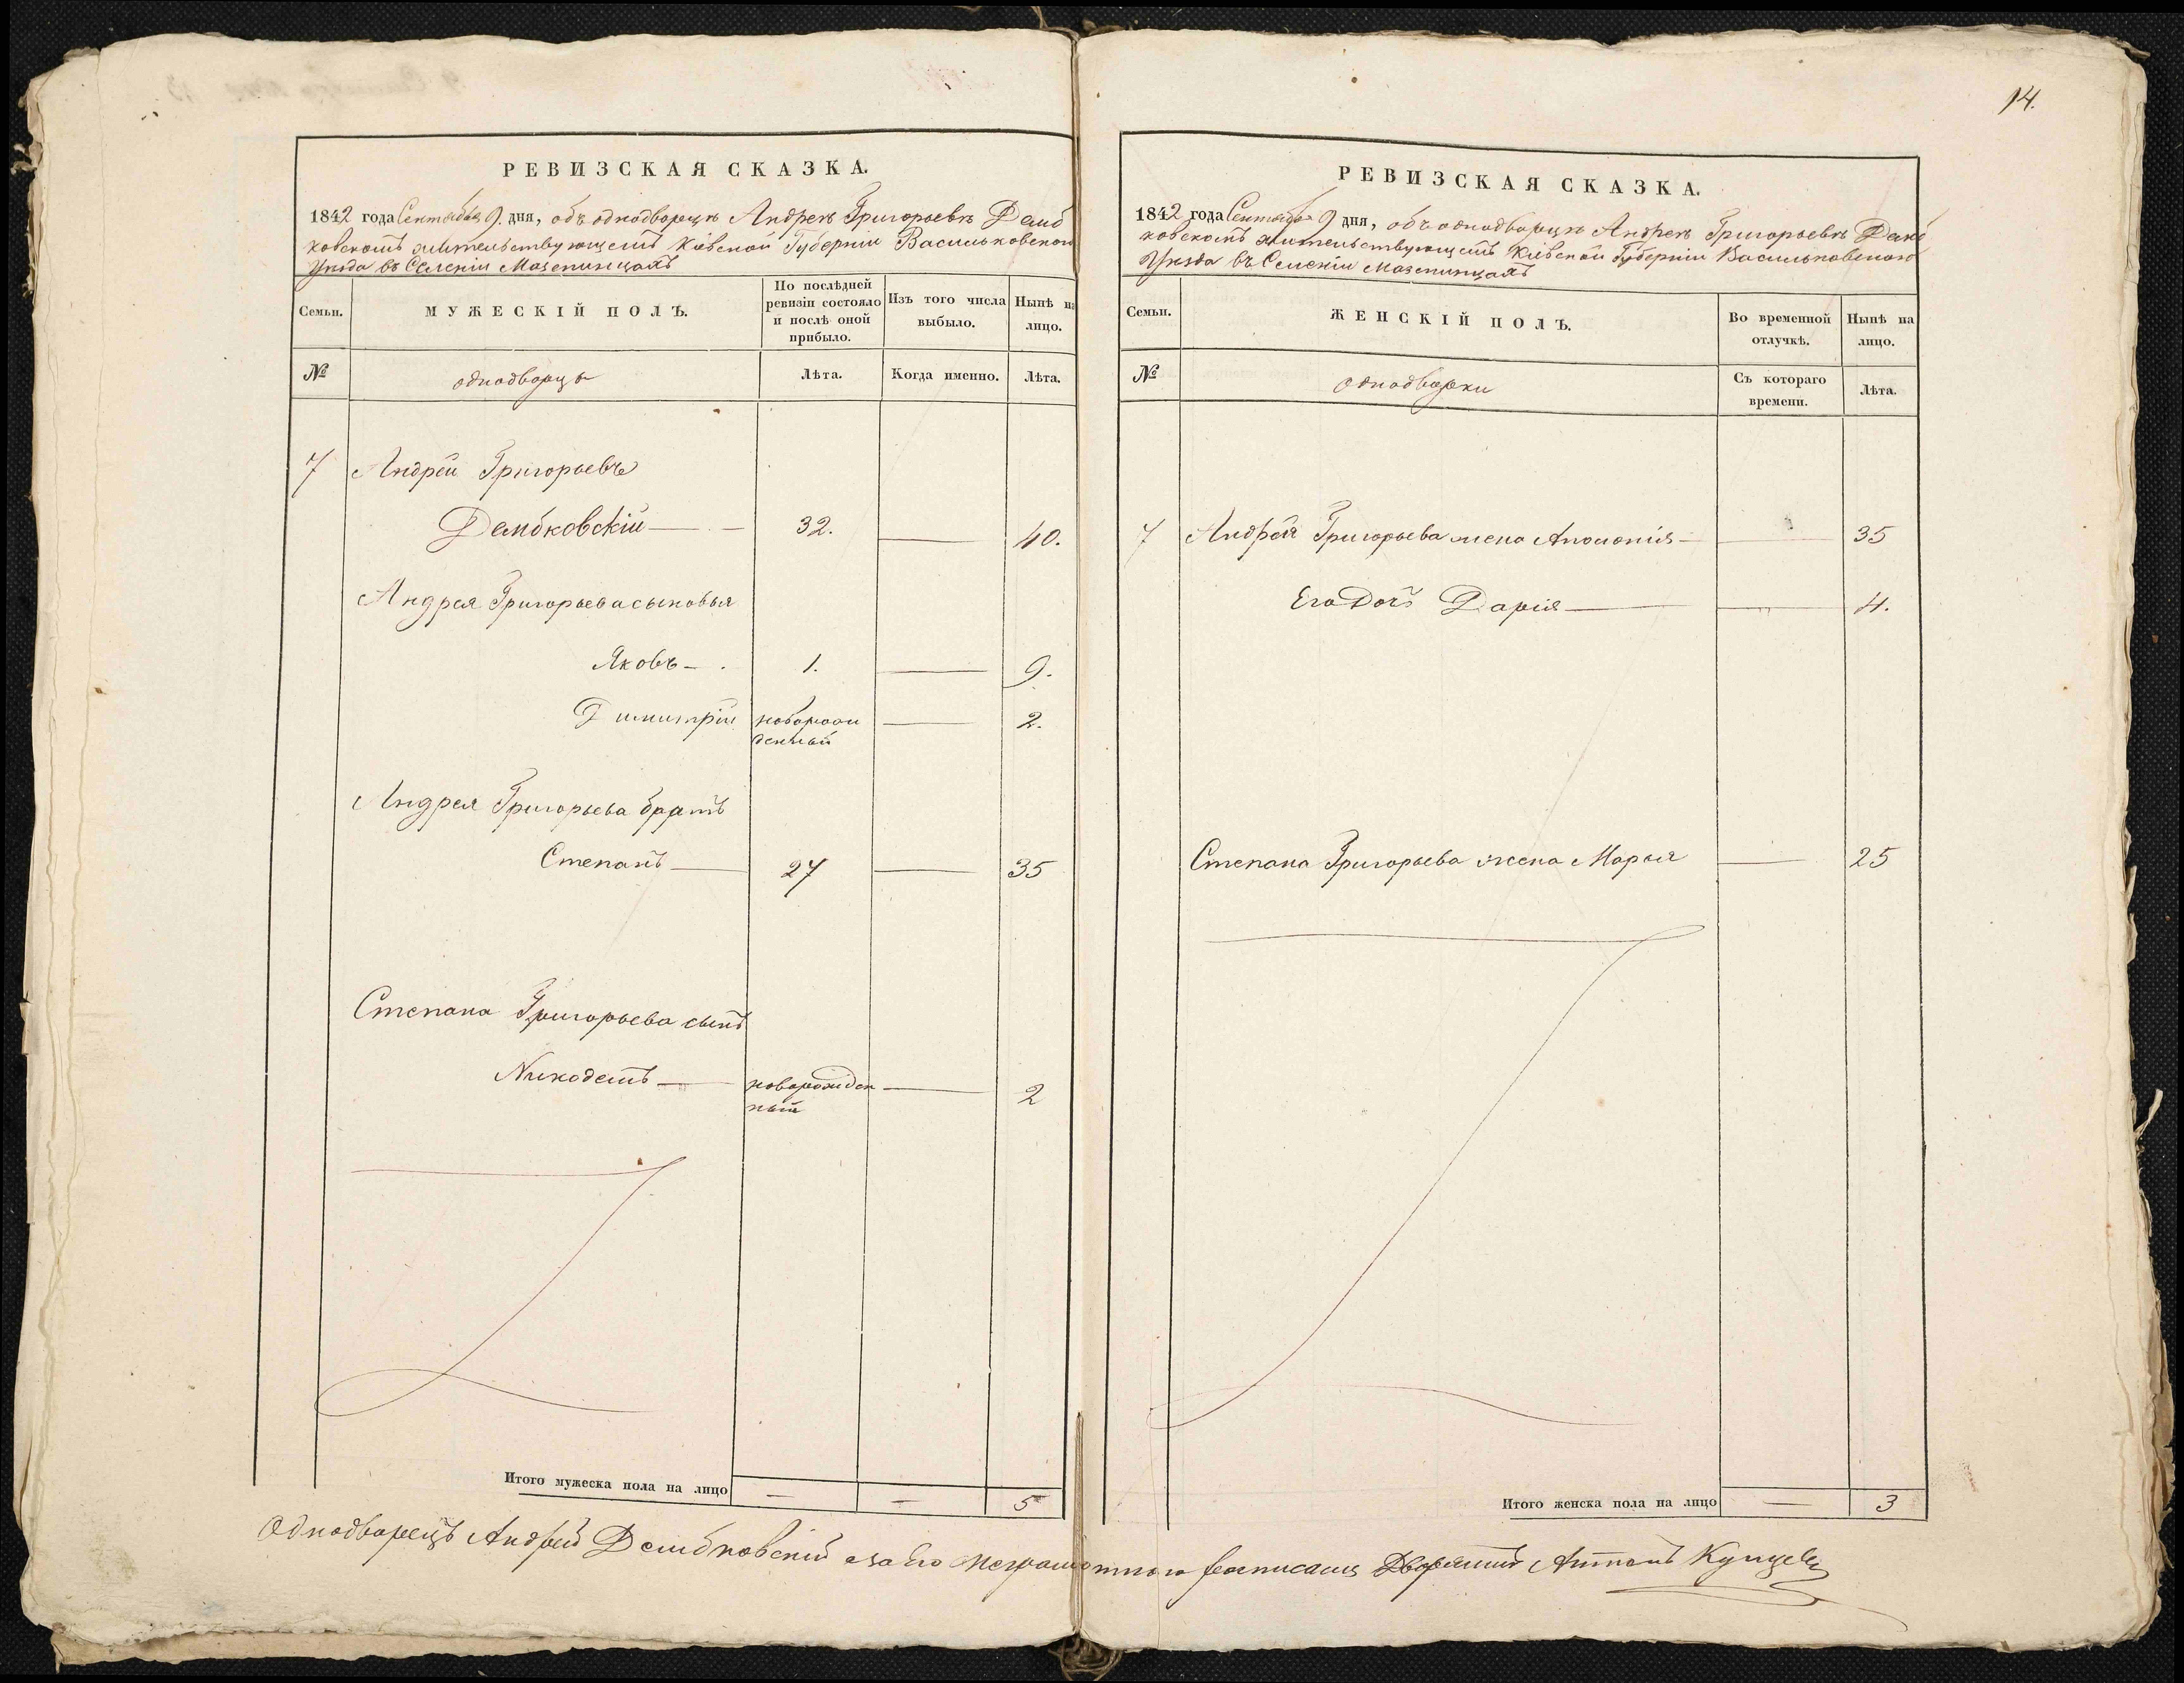 14.
РЕВИЗСКАЯ СКАЗКА.
1842 года Сентября 9. дня, объ однодворцѣ Андреѣ Григорьевѣ Демб
ковскомъ жительствующемъ Кіевской Губерніи Васильковского
Уѣзда въ Селеніи Мазепинцахъ
Семьи.
МУЖЕСКІЙ ПОЛЪ.
По послѣдней
ревизіи состояло
и послѣ оной
прибыло.
Изъ того числа
выбыло.
Нынѣ на
лицо.
№
однодворцы
Лѣта.
Когда именно.
Лѣта.
7 Андрей Григорьевъ
Дембковскій — 32. — 40.
Андрея Григорьева сыновья
Яковъ — 1. — 9.
Димитрій новорож — 2.
денный
Андрея Григорьева братъ
Степанъ — 27 — 35
Степана Григорьева сынъ
Никодемъ — новорожден — 2
ный
Итого мужеска пола на лицо — — 5
РЕВИЗСКАЯ СКАЗКА.
1842 года Сентября 9 дня, объ однодворцѣ Андреѣ Григорьевѣ Демб
ковскомъ жительствующемъ Кіевской Губерніи Васильковского
Уѣзда въ Селеніи Мазепинцахъ
Семьи.
ЖЕНСКІЙ ПОЛЪ.
Во временной
отлучкѣ.
Нынѣ на
лицо.
№
однодворки
Съ котораго
времени.
Лѣта.
7 Андрея Григорьева жена Аполонія — — 35
Его Дочь Дарія — — 4.
Степана Григорьева жена Марья — 25
Итого женска пола на лицо — 3
Однодворецъ Андрей Дембковскій а за Его неграмотного росписался Дворянинъ Антонъ